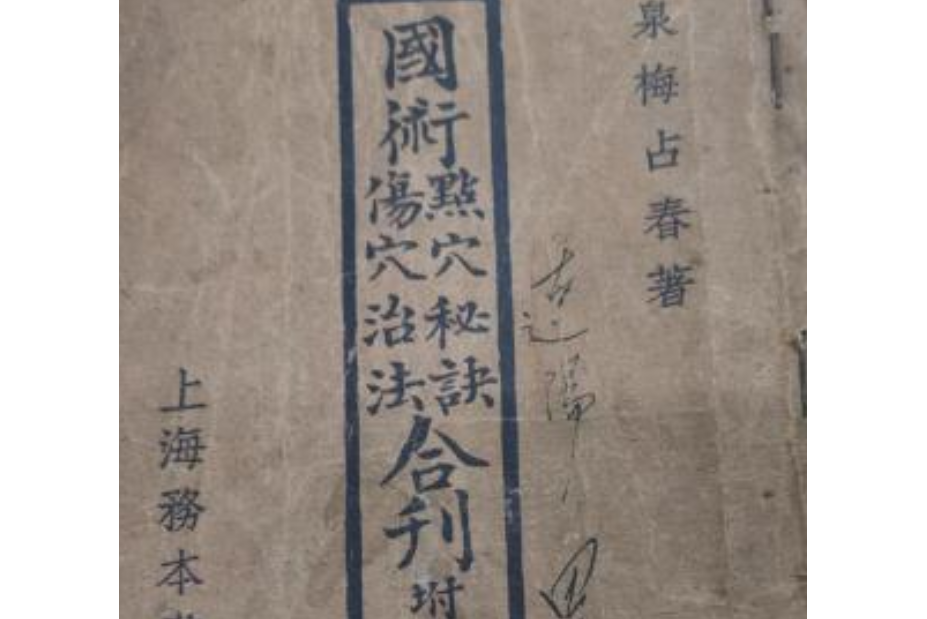 泉梅占春著
國術
點穴秘訣
傷穴治法
合刊
坿
上海務本